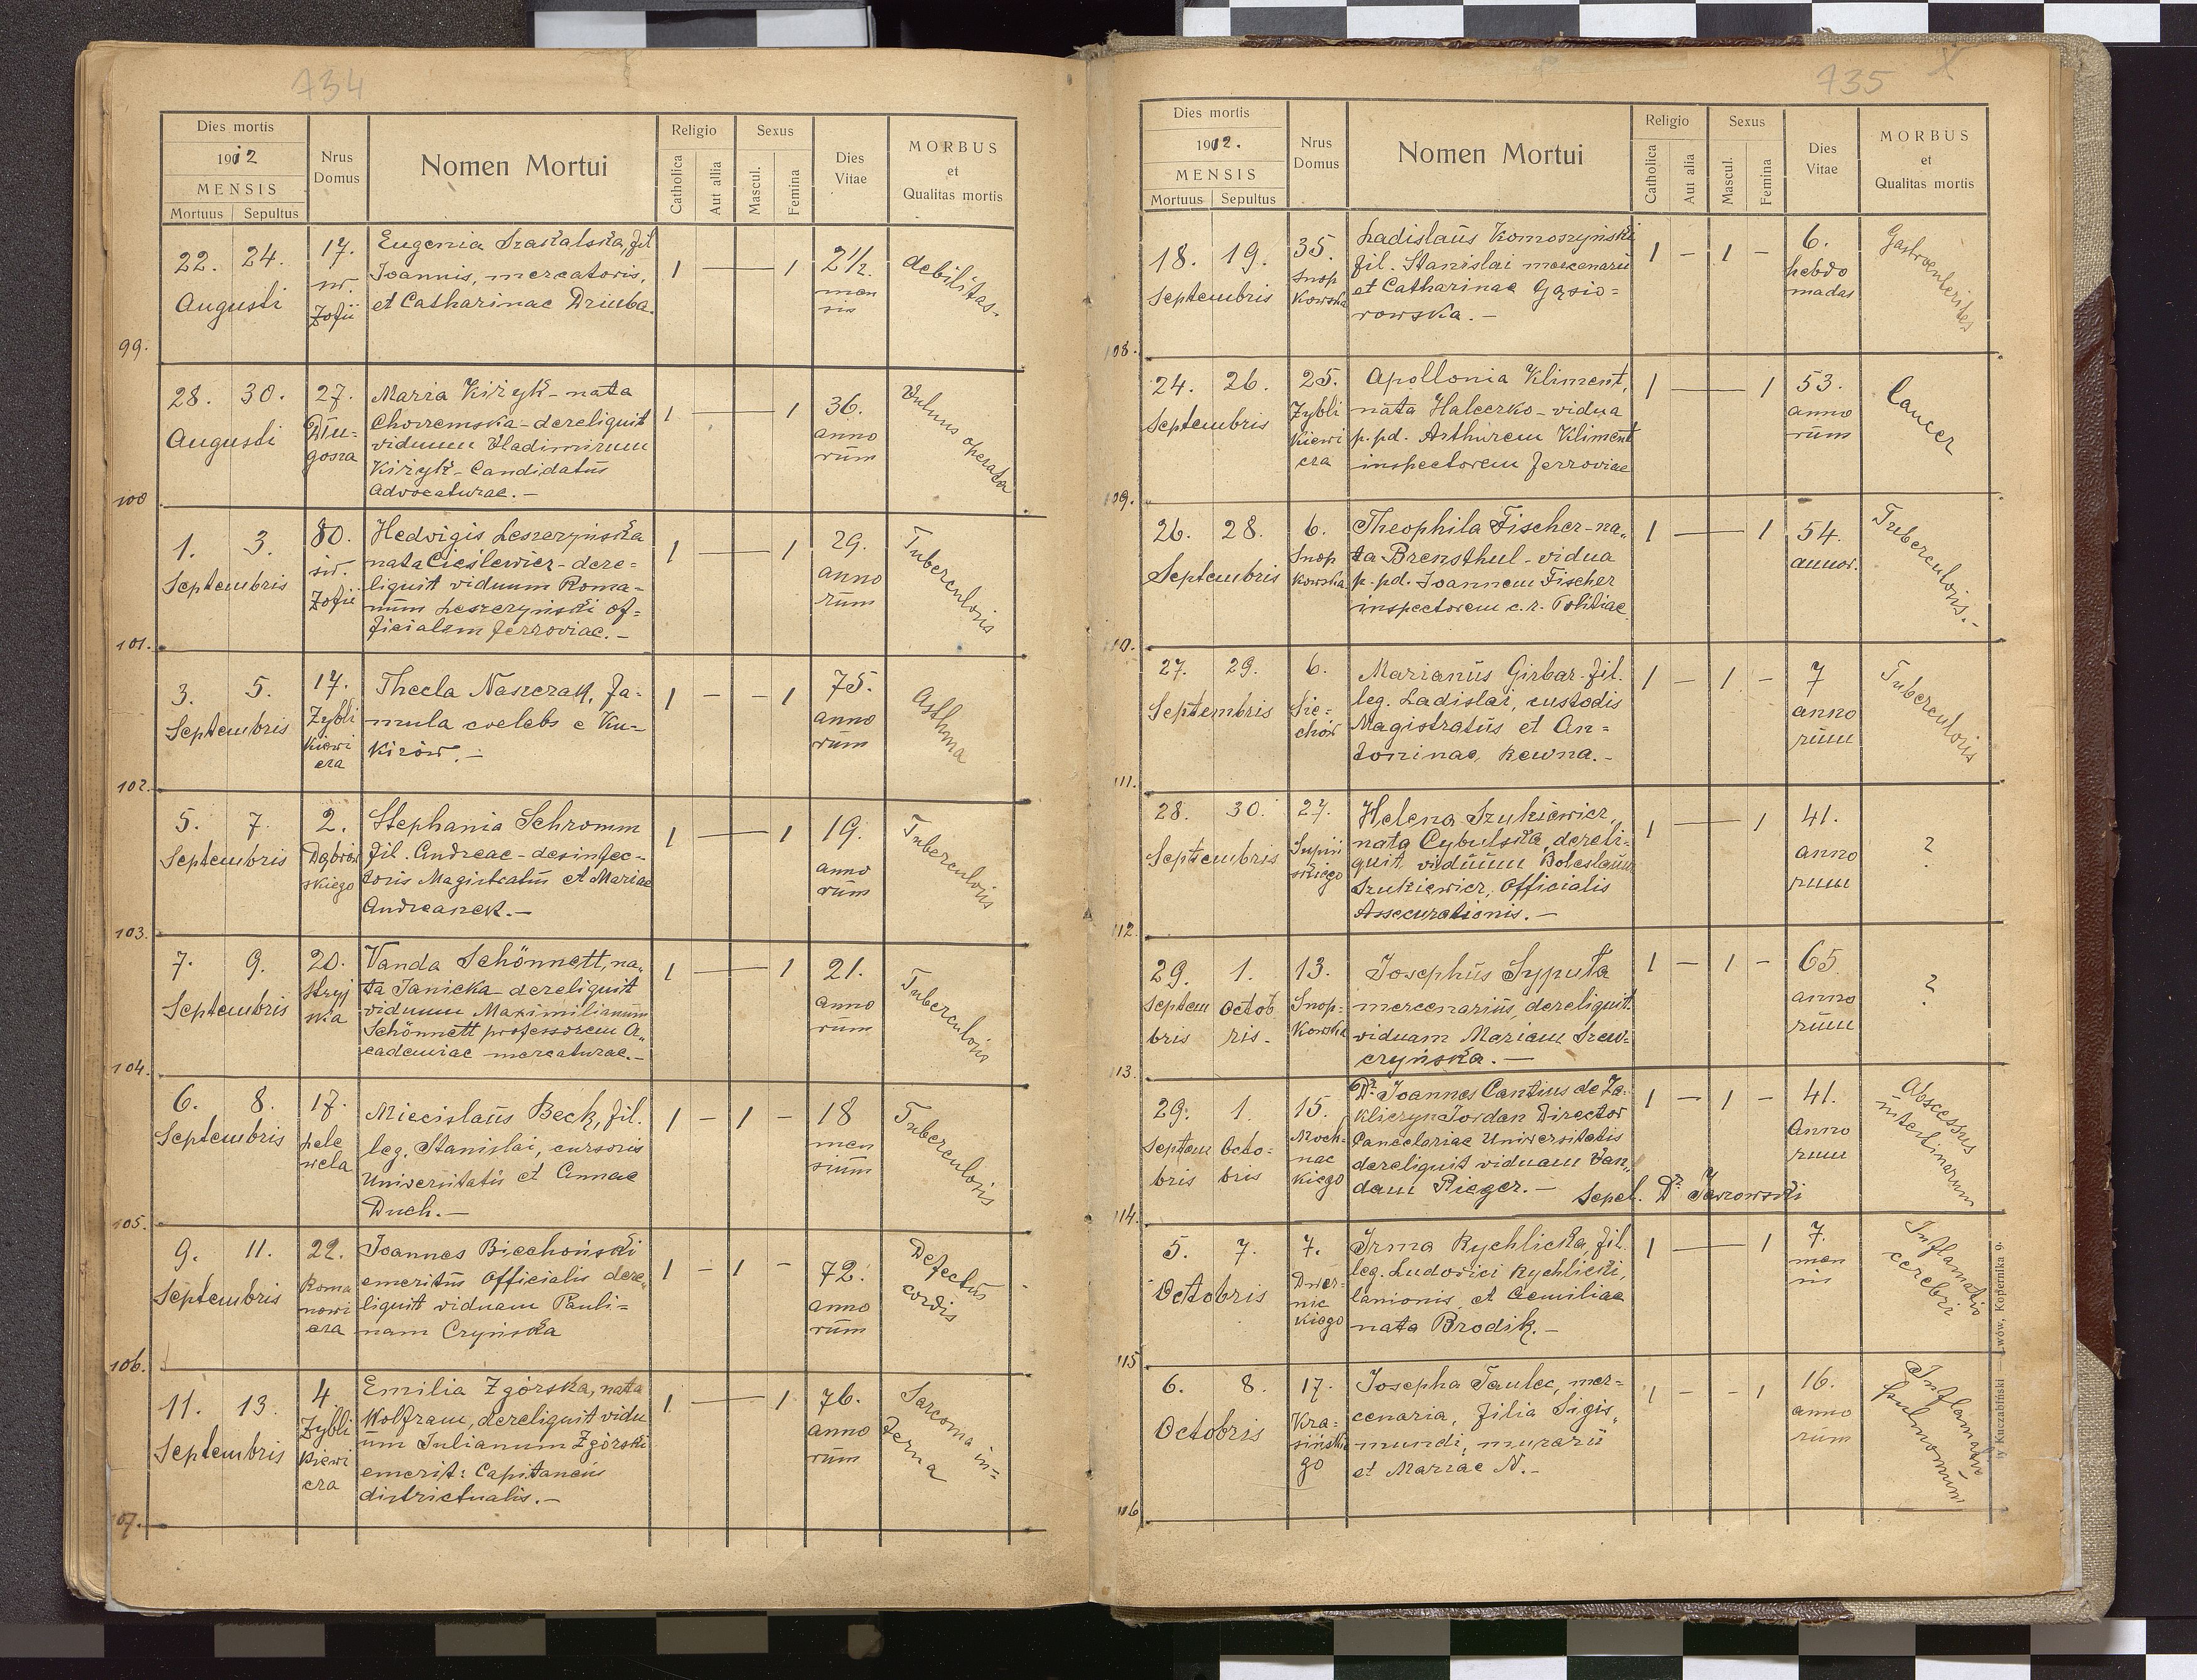 734
Dies mortis
1912
MENSIS
Mortuus Sepultus
Nrus
Domus
Nomen Mortui
Religio
Catholica
Aut allia
Sexus
Mascul.
Femina
Dies
Vitae
MORBUS
et
Qualitas mortis
22. 24.
Augusti
17.
św.
Zofii
Eugenia Szastalska, fil
Joannis, mercatoris,
et Catharinae Dziuba.
1 — 1
2 1/2.
men
sis
debilitas.
99.
28. 30.
Augusti
27.
Dłu-
gosza
Maria Kiržyk - nata
Chorremska - dereliquit
viduum Vladimirum
Kiržyk - Candidatus
Advocaturae. —
1 — 1
36.
anno
rum
Vulnus operata
100
1. 3.
Septembris
80.
św.
Zofii
Hedvigis Leszczyńska
nata Cieślewicz - dere-
liquit viduum Roma-
num Leszczyński of-
ficialem ferroviae. —
1 — 1
29.
anno
rum
Tuberculosis
101.
3. 5.
Septembris
17.
Zybli
kiewi
cza
Thecla Naszczak, fa-
mula coelebs e Ku-
kizów. —
1 - - 1
75.
anno
rum
Asthma
102.
5. 7.
Septembris
2.
Dąbrow
skiego
Stephania Schromm
fil. Andreae - desinfec-
toris Magistratus et Mariae
Andreanek. —
1 — 1
19.
anno
rum
Tuberculosis
103.
7. 9.
Septembris
20.
Stryj
ska
Vanda Schönnett, na„
ta Janicka dereliquit
viduum Maximilianum
Schönnett professorem A„
cademiae mercaturae. —
1 — 1
21.
anno
rum
Tuberculosis
104.
6. 8.
Septembris
17.
Lele
wela
Miecislaus Beck, fil.
leg. Stanislai, cursoris
Universitatis et Annae
Duch. —
1 - 1 -
18
men
sium
Tuberculosis
105.
9. 11.
Septembris
22.
Roma
nowi
cza
Joannes Biechoński
emeritus Officialis dere„
liquit viduam Pauli-
nam Czyńska
1 - 1 -
72.
anno
rum
Defectus
cordis
106.
11. 13.
Septembris
4.
Zybli
kiewi
cza
Emilia Zgórska, nata
Wolfram, dereliquit vidu
um Julianum Zgórski
emerit: Capitaneus
districtualis. —
1 — 1
76.
anno
rum
Sarcoma in-
terna
107.
735
X
Dies mortis
1912.
MENSIS
Mortuus Sepultus
Nrus
Domus
Nomen Mortui
Religio
Catholica
Aut alia
Sexus
Mascul.
Femina
Dies
Vitae
MORBUS
et
Qualitas mortis
18. 19.
Septembris
35.
Snop
kowska
Ladislaus Komoszyński
fil. Stanislai mercenarii
et Catharinae Gąsio-
rowska. —
1 - 1 -
6.
hebdo
madas
Gastroenterites
108.
24. 26.
Septembris
25.
Zybli
kiewi
cza
Apollonia Kliment,
nata Haleczko - vidua
p. pd. Arthurem Kliment
inspectorem ferroviae
1 — 1
53.
anno
rum
Cancer
109.
26. 28.
Septembris
6.
Snop
kowska
Theophila Fischer - na„
ta Brensthul - vidua
p. pd. Joannem Fischer
inspectorem c. r. Politiae
1 — 1
54.
annor.
Tuberculosis. -
110.
27. 29.
Septembris
6.
Sie-
chów
Marianus Girbar. fil.
leg. Ladislai, custodis
Magistratus et An-
toninae, Rewna. —
1 - 1 -
7
anno
rum
Tuberculosis
111.
28. 30.
Septembris
27.
Supiń
skiego
Helena Szukiewicz,
nata Cybulska, dereli-
quit viduum Boleslaum
Szukiewicz, Officialis
Assecurationis. —
1 — 1
41.
anno
rum
?
112.
29. 1.
Septem Octob
bris ris.
13.
Snop-
kowska
Josephus Syputa
mercenarius, dereliquit
viduam Mariam Szew-
czyńska. —
1 - 1 -
65
anno
rum
?
113.
29. 1.
Septem Octo-
bris bris
15.
Moch-
nac
kiego
Dr. Joannes Cantius de Za-
kliczyn Jordan Director
Cancelariae Universitatis
dereliquit viduam Van„
dam Rieger. — Sepel. Dr. Jaworowski
1 - 1 -
41.
Anno
rum
Abscessus
intestinarum
114.
5. 7.
Octobris
7.
Dwer-
nic
kiego
Irma Rychlicka, fil.
leg. Ludovici Rychlicki,
lanionis, et Aemiliae
nata Brodik. —
1 — 1
7.
men
sis
Inflamatio
cerebri
115
6. 8.
Octobris
17.
Kra-
sińskie
go
Josepha Taulec, mer-
cenaria, filia Sigis„
mundi, murarii
et Mariae N. —
1 - - 1
16.
anno
rum
Inflamatio
pulmonum
116
Kuczabiński — Lwów, Kopernika 9.